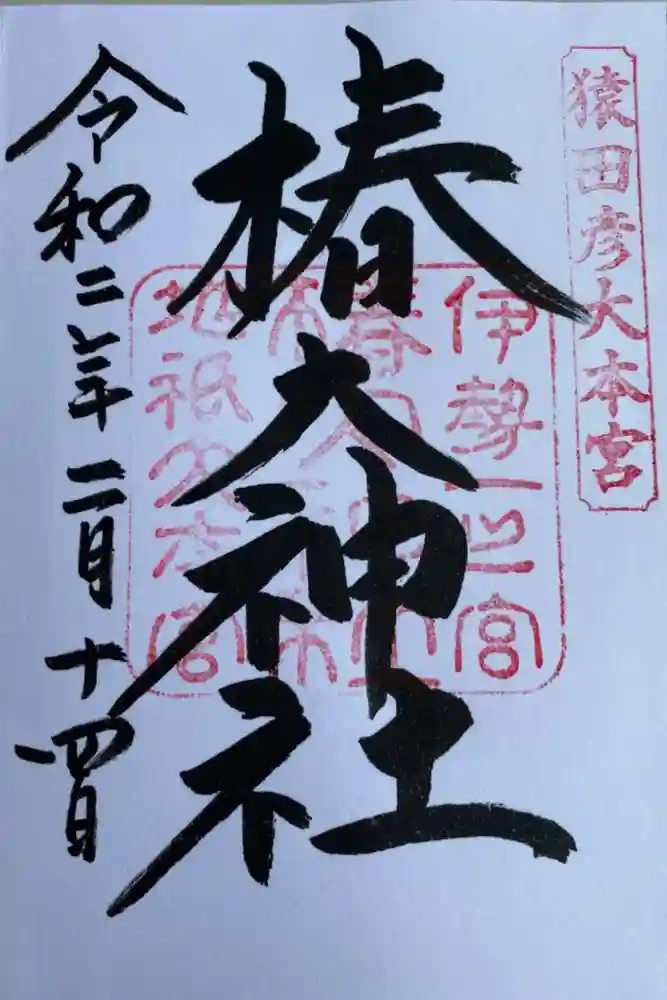 猿田彦大本宮
伊勢一之宮
椿大神社
地祇大本宮
椿大神社
令和二年二月十四日